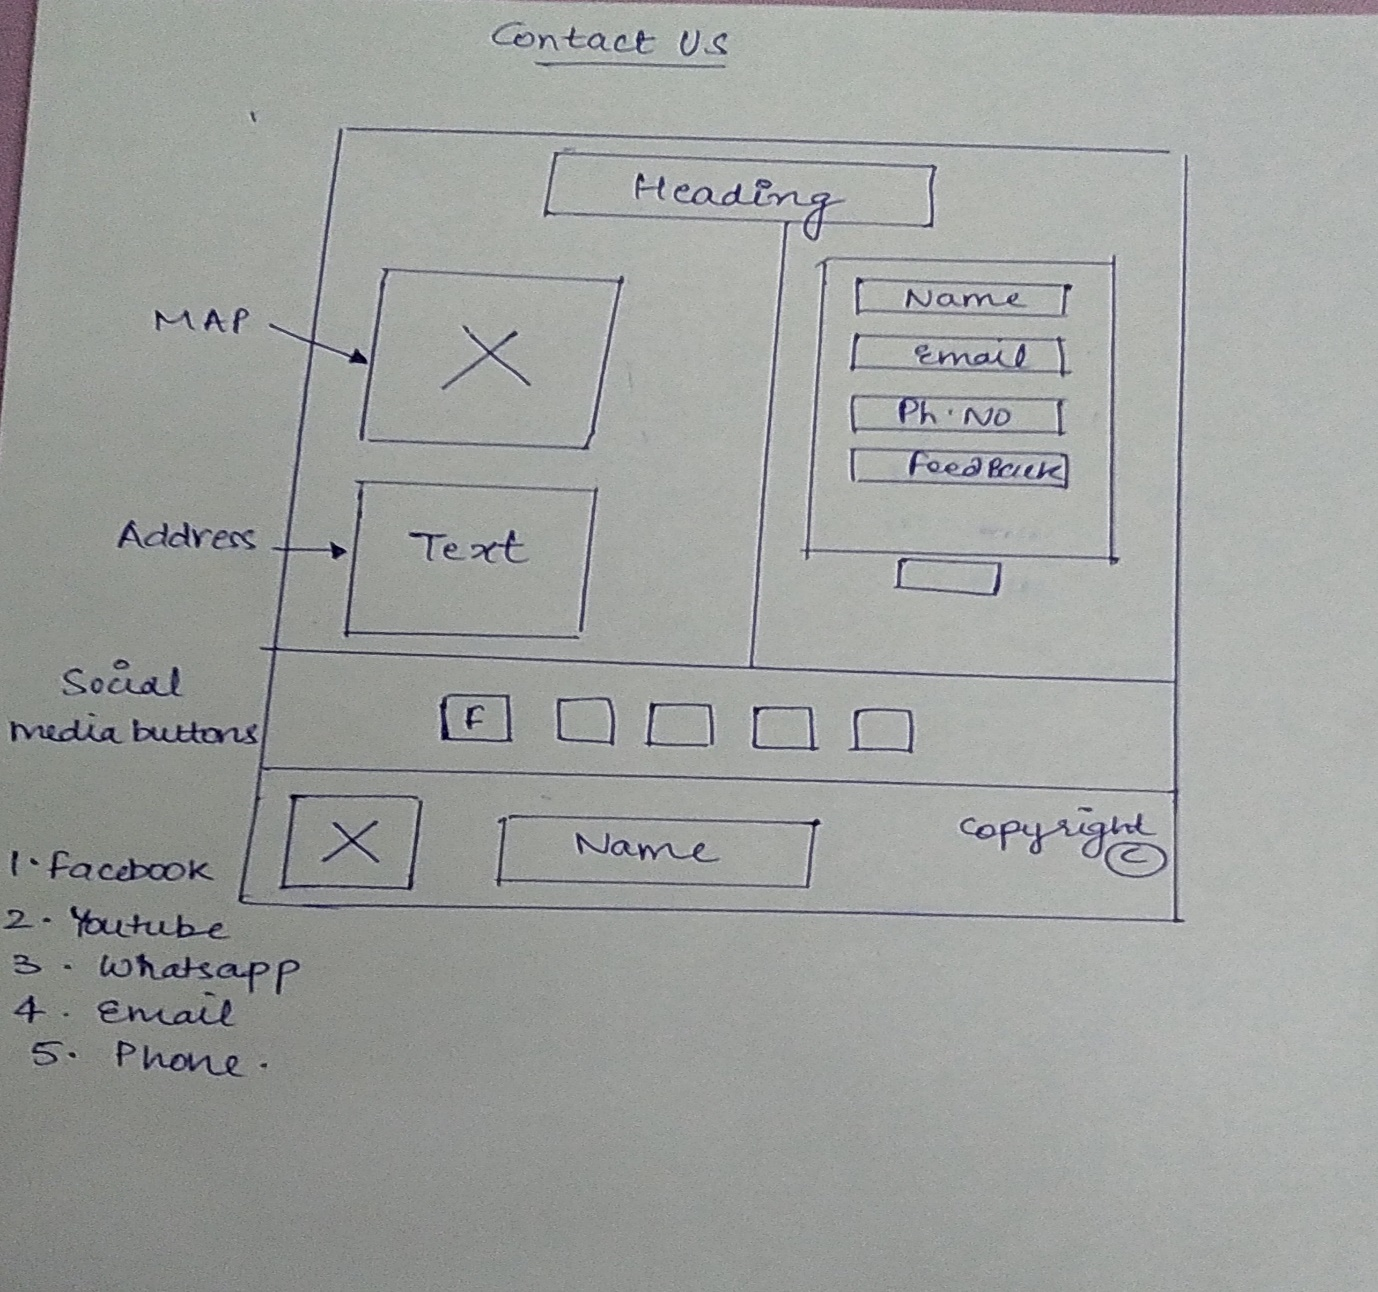 Contact US
Heading
MAP
Name
Email
Ph. NO
FeedBack
Address
Text
Social
media buttons
F
Name
Copyright
©
1. Facebook
2. Youtube
3. Whatsapp
4. Email
5. Phone.